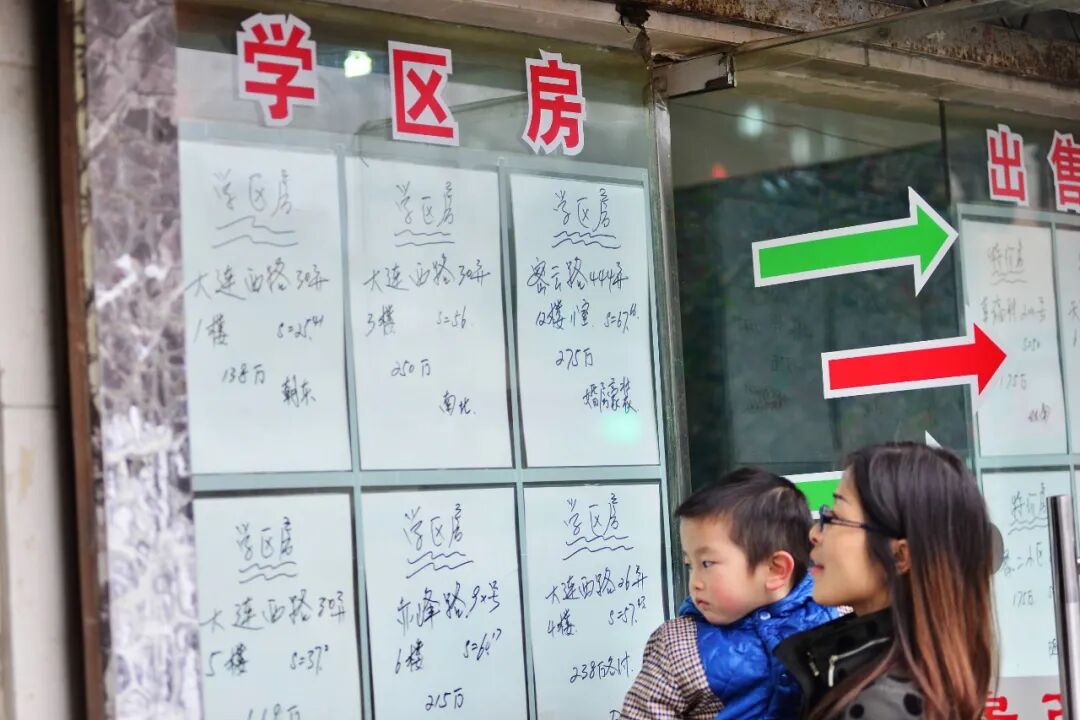 学区房
出售
学区房
大连西路30弄
1楼 S=25.41
138万
朝东
学区房
大连西路30弄
3楼 S=56.
250万
南北.
学区房
密云路444弄
12楼 1室. S=67.
275万
婚房豪装
学区房
大连西路30弄
5楼 S=37.
学区房
赤峰路9×号
6楼 S=64.17
215万
学区房
大连西路26弄
4楼. S=57.
238万各付.
175万
175万